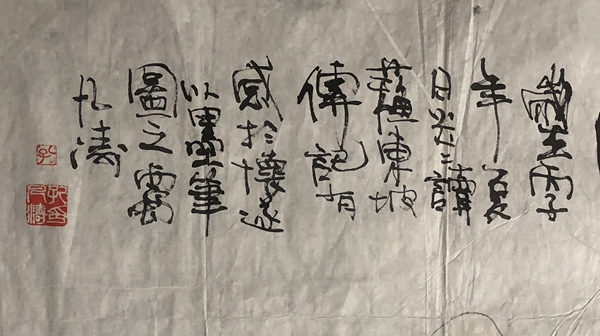 歲在丙子
年夏
日炎二讀
蘇東坡
傳記有
感於懷遂
以墨筆
圖之
濤